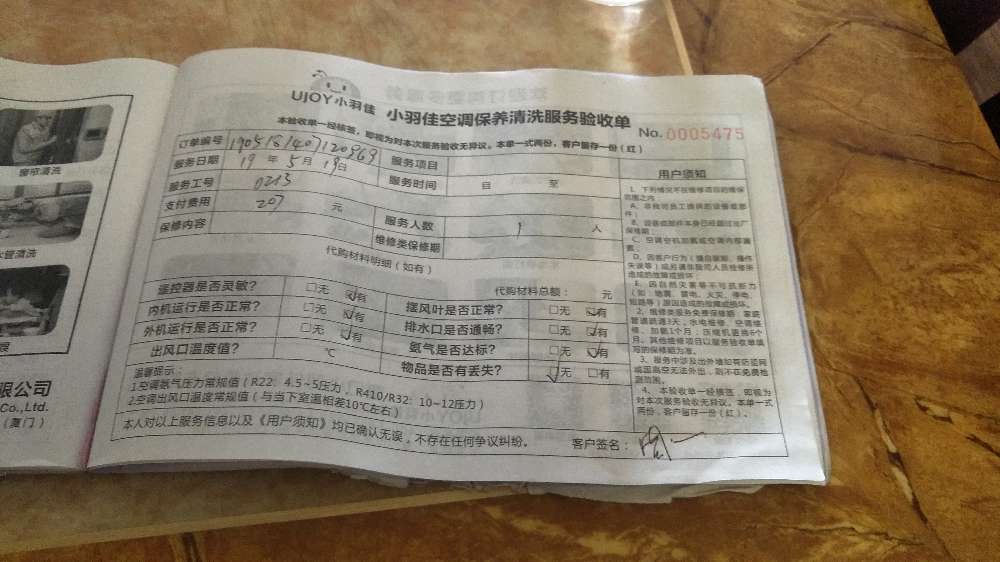 窗帘清洗
水管清洗
限公司
Co.,Ltd.
（厦门）
UJOY小羽佳 小羽佳空调保养清洗服务验收单
本验收单一经核签，即视为对本次服务验收无异议。本单一式两份，客户留存一份（红）
No. 0005475
订单编号 服务项目
服务日期 19 年 5 月 19日 服务时间 目 至
服务工号 0213
支付费用 207 元 服务人数 1 人
保修内容 维修类保修期
代购材料明细（如有）
代购材料总额： 元
遥控器是否灵敏？ □无 ☑有 摆风叶是否正常？ □无 ☑有
内机运行是否正常？ □无 ☑有 排水口是否通畅？ □无 ☑有
外机运行是否正常？ □无 ☑有 氨气是否达标？ □无 ☑有
出风口温度值？ ℃ 物品是否有丢失？ ☑无 □有
温馨提示：
1.空调氨气压力常规值（R22：4.5~5压力，R410/R32：10~12压力）
2.空调出风口温度常规值（与当下室温相差10℃左右）
本人对以上服务信息以及《用户须知》均已确认无误，不存在任何争议纠纷。 客户签名：
用户须知
1、下列情况不在维修项目的维保
范围之内：
A、非我司员工提供的设备或部
件；
B、设备或部件本身已经超过出厂
保修期；
D、因客户行为（擅自装卸、操作
失误等）或另请非我司人员检修所
造成的故障或损坏；
E、因自然灾害等不可抗拒力
（如：地震、雷电、火灾、停电、
短路等）原因造成的故障或损坏。
2、维修类服务免费保修期：家庭
管道疏通3天，水电维修、空调维
修、加氨1个月；压缩机更换6个
月。其他维修项目以服务验收单填
写的保修期为准。
3、服务中涉及出外墙如有防盗网
或因高空无法外出，则不在免费检
测范围。
4、本验收单一经核签，即视为
对本次服务验收无异议。本单一式
两份，客户留存一份（红）。